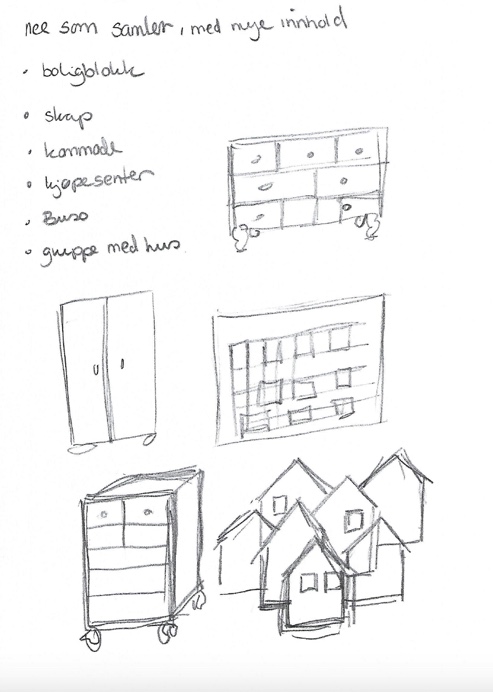 noe som samler, med mye innhold
• boligblokk
• skap
• kommode
• kjøpesenter
• Buss
• gruppe med hus